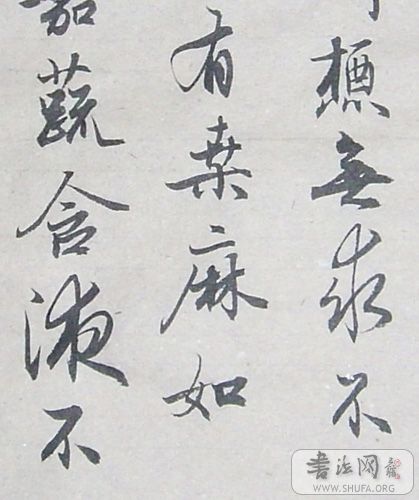 槱無求不
有桒麻如
嘉蔬含液不
書法网
WWW.SHUFA.ORG